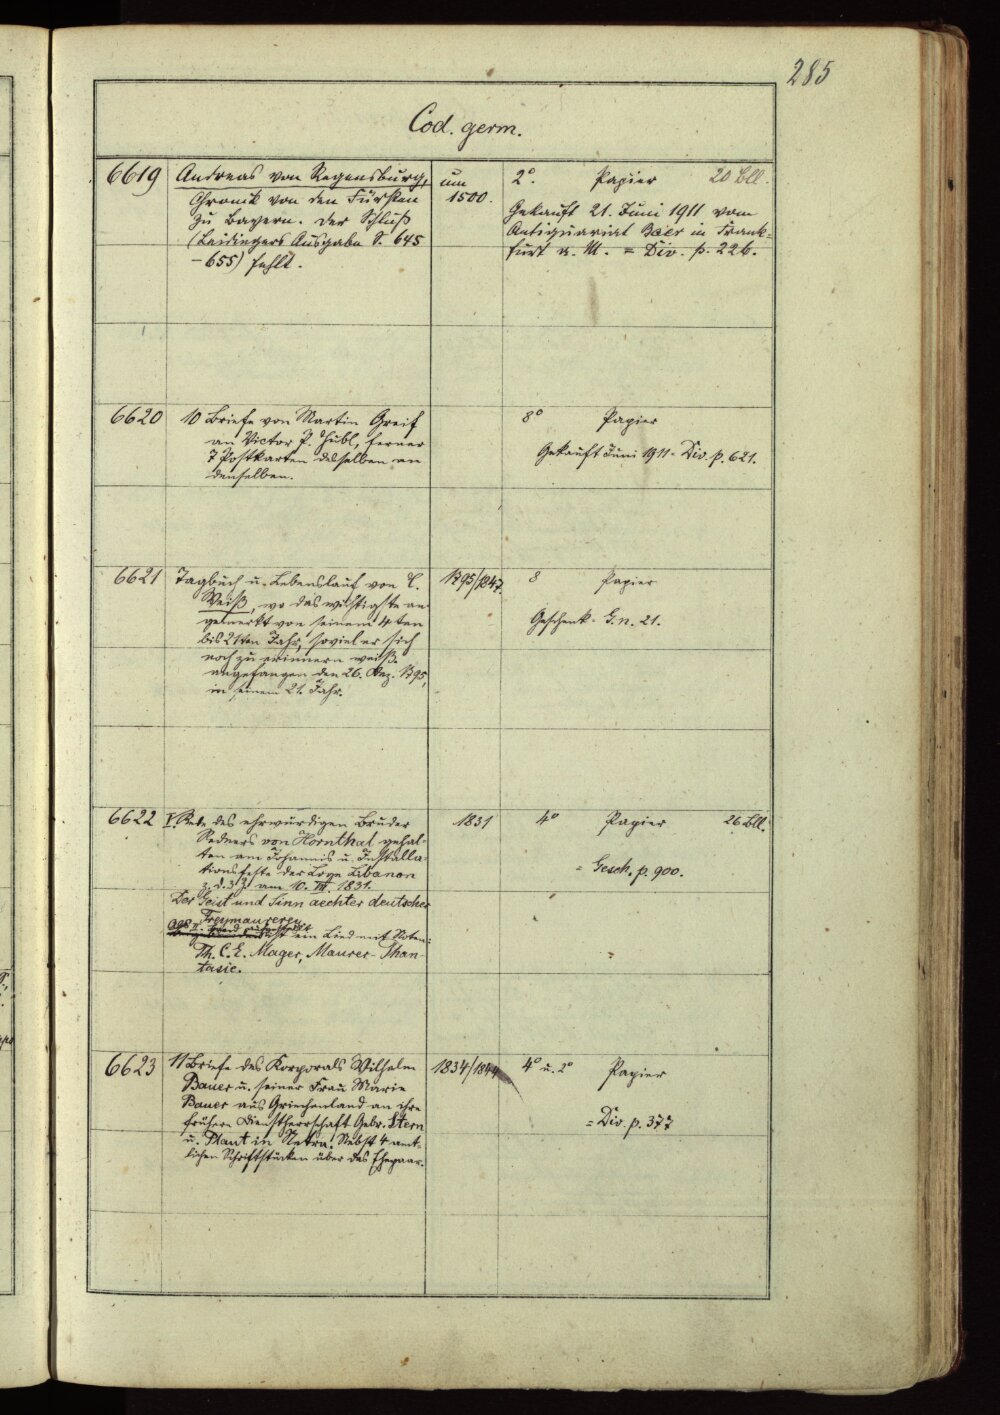 285
Cod. germ.
6619 Andreas von Regensburg, um 1500. 2°. Papier 20 Bll.
Chronik von den Fürsten
zu Bayern. Der Schluß
(Leidingers Ausgabe S. 645
-655) fehlt.
Gekauft 21. Juni 1911 vom
Antiquariat Baer in Frank-
furt a. M. = Div. p. 226.
6620 10 Briefe von Martin Greif 8° Papier
an Victor P. Hubl, ferner
7 Postkarten desselben an
denselben.
Gekauft Juni 1911 = Div. p. 621.
6621 Tagbuch u. Lebenslauf von C. 1795/1847 8 Papier
Weiß, wo das wichtigste an
gemerkt von seinem 4ten
bis 21ten Jahr, soviel er sich
noch zu erinnern weiß.
angefangen den 26. Dez. 1795,
in seinem 21. Jahr.
Geschenk - G. n. 21.
6622 I. Rede des ehrwürdigen Bruder 1831 4° Papier 26 Bll.
Redners von Hornthal gehal-
ten am Johannis u. Installa-
tionsfeste der Loge Libanon
z. d. 3 Z. am 10. VII. 1831.
Der Geist und Sinn aechter deutscher
Freymaurerey
ist ein Lied mit Noten:
Th. C. E. Mager, Maurer-Phan-
tasie.
= Gesch. p. 900.
6623 11 Briefe des Korporals Wilhelm 1834/1844 4° u. 2° Papier
Bauer u. seiner Frau Marie
Bauer aus Griechenland an ihre
frühere Dienstherrschaft Gebr. Stern
u. Plaut in Netra. Nebst 4 amt-
lichen Schriftstücken über das Ehepaar.
= Div. p. 377